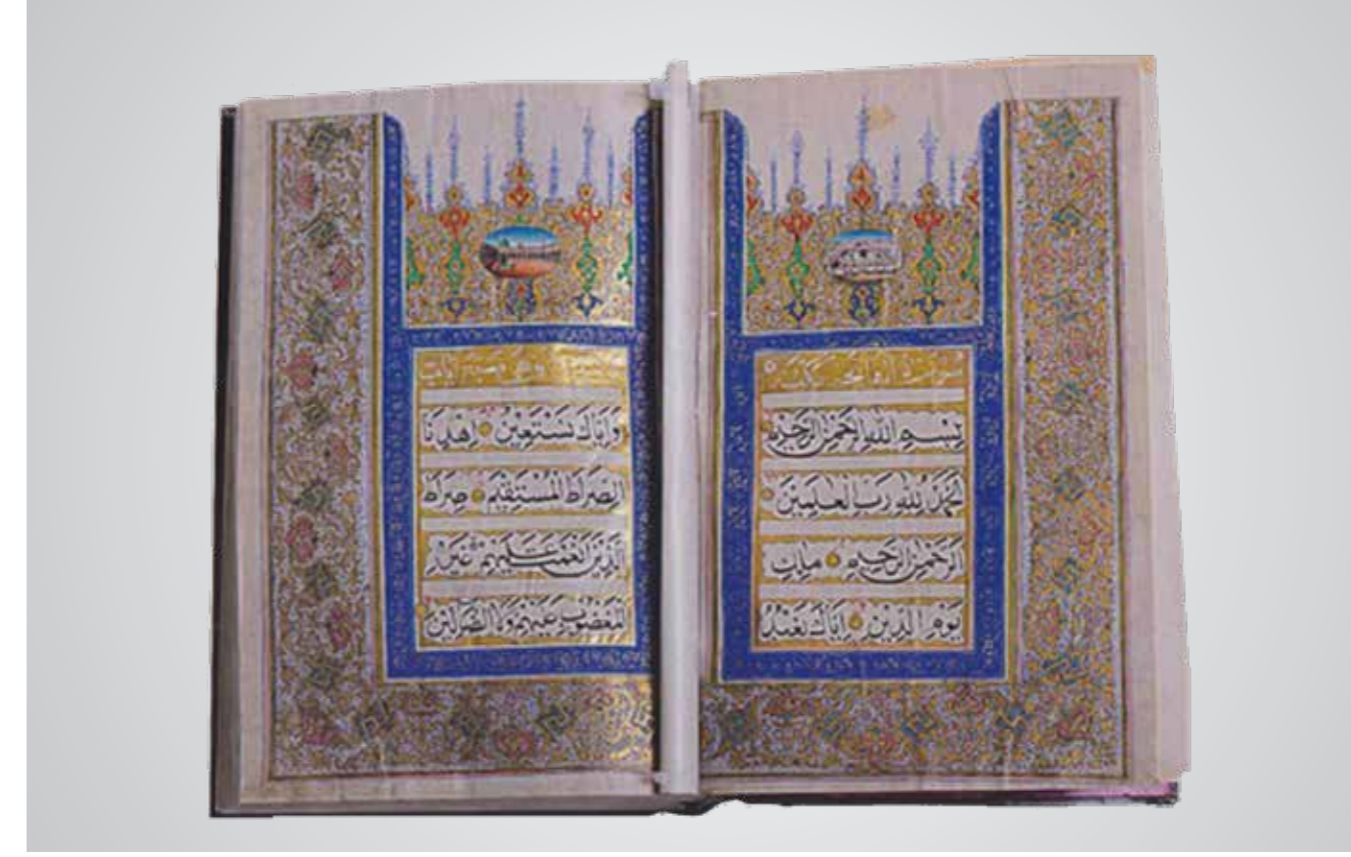 بِسْمِ اللهِ الرَّحْمٰنِ الرَّحِيْمِ
اَلْحَمْدُ لِلّٰهِ رَبِّ الْعٰلَمِيْنَ
الرَّحْمٰنِ الرَّحِيْمِ مٰلِكِ
يَوْمِ الدِّيْنِ اِيَّاكَ نَعْبُدُ
وَاِيَّاكَ نَسْتَعِيْنُ اِهْدِنَا
الصِّرَاطَ الْمُسْتَقِيْمَ صِرَاطَ
الَّذِيْنَ اَنْعَمْتَ عَلَيْهِمْ غَيْرِ
الْمَغْضُوْبِ عَلَيْهِمْ وَلَا الضَّآلِّيْنَ